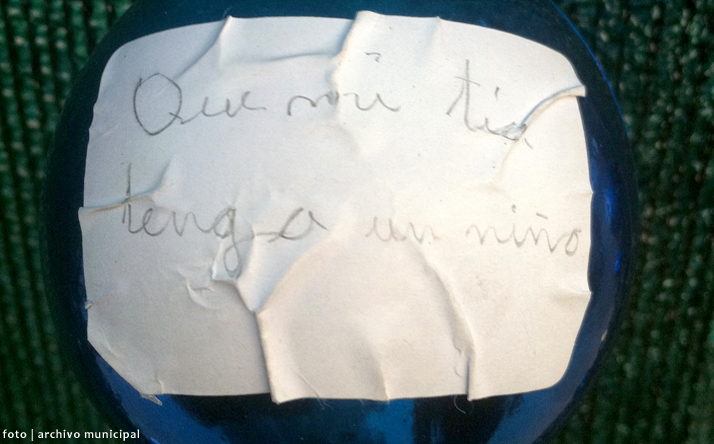 Que mi tia
tenga un niño
foto | archivo municipal